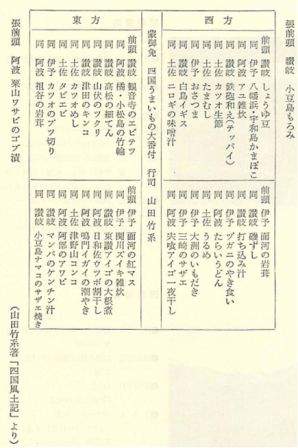 張前頭 讃岐 小豆島もろみ
西方
前頭 讃岐 しょうゆ豆
同 伊予 八幡浜・宇和島かまぼこ
同 阿波 アユ雑炊
同 讃岐 鉄砲和え(テッパイ)
同 土佐 カツオ生節
同 土佐 たまむし
同 伊予 おさつま
同 讃岐 白島イギス
同 土佐 ニロギの味噌汁
前頭 伊予 面河の岩茸
同 讃岐 磯ずし
同 讃岐 打ち込み汁
同 伊予 ヅガニのやき食い
同 阿波 たらいうどん
同 土佐 うるめ
同 伊予 大洲のいもだき
同 伊予 三崎のサザエ
同 阿波 宍喰アイゴ一夜干し
蒙御免 四国うまいもの大番付 行司 山田竹系
東方
前頭 讃岐 観音寺のエビテツ
同 阿波 橘・小松島の竹輪
同 讃岐 高松の細てん
同 讃岐 山伏のツクリ
同 讃岐 津田のキンコ
同 土佐 カツオめし
同 土佐 タビエビ
同 伊予 カツオのブツ切り
同 阿波 祖谷の岩茸
前頭 伊予 面河の紅マス
同 伊予 関川ズイキ雑炊
同 讃岐 東讃アイゴの大根煮
同 阿波 日和佐ウツボ割干し
同 阿波 鳴門イガイの潮やき
同 土佐 津野山コンコ
同 阿波 阿部のアワビ
同 讃岐 マンバのケンチン汁
同 讃岐 小豆島ナマコのサザエ焼き
張前頭 阿波 栗山ワサビのゴブ漬
(山田竹系著「四国風土記」より)